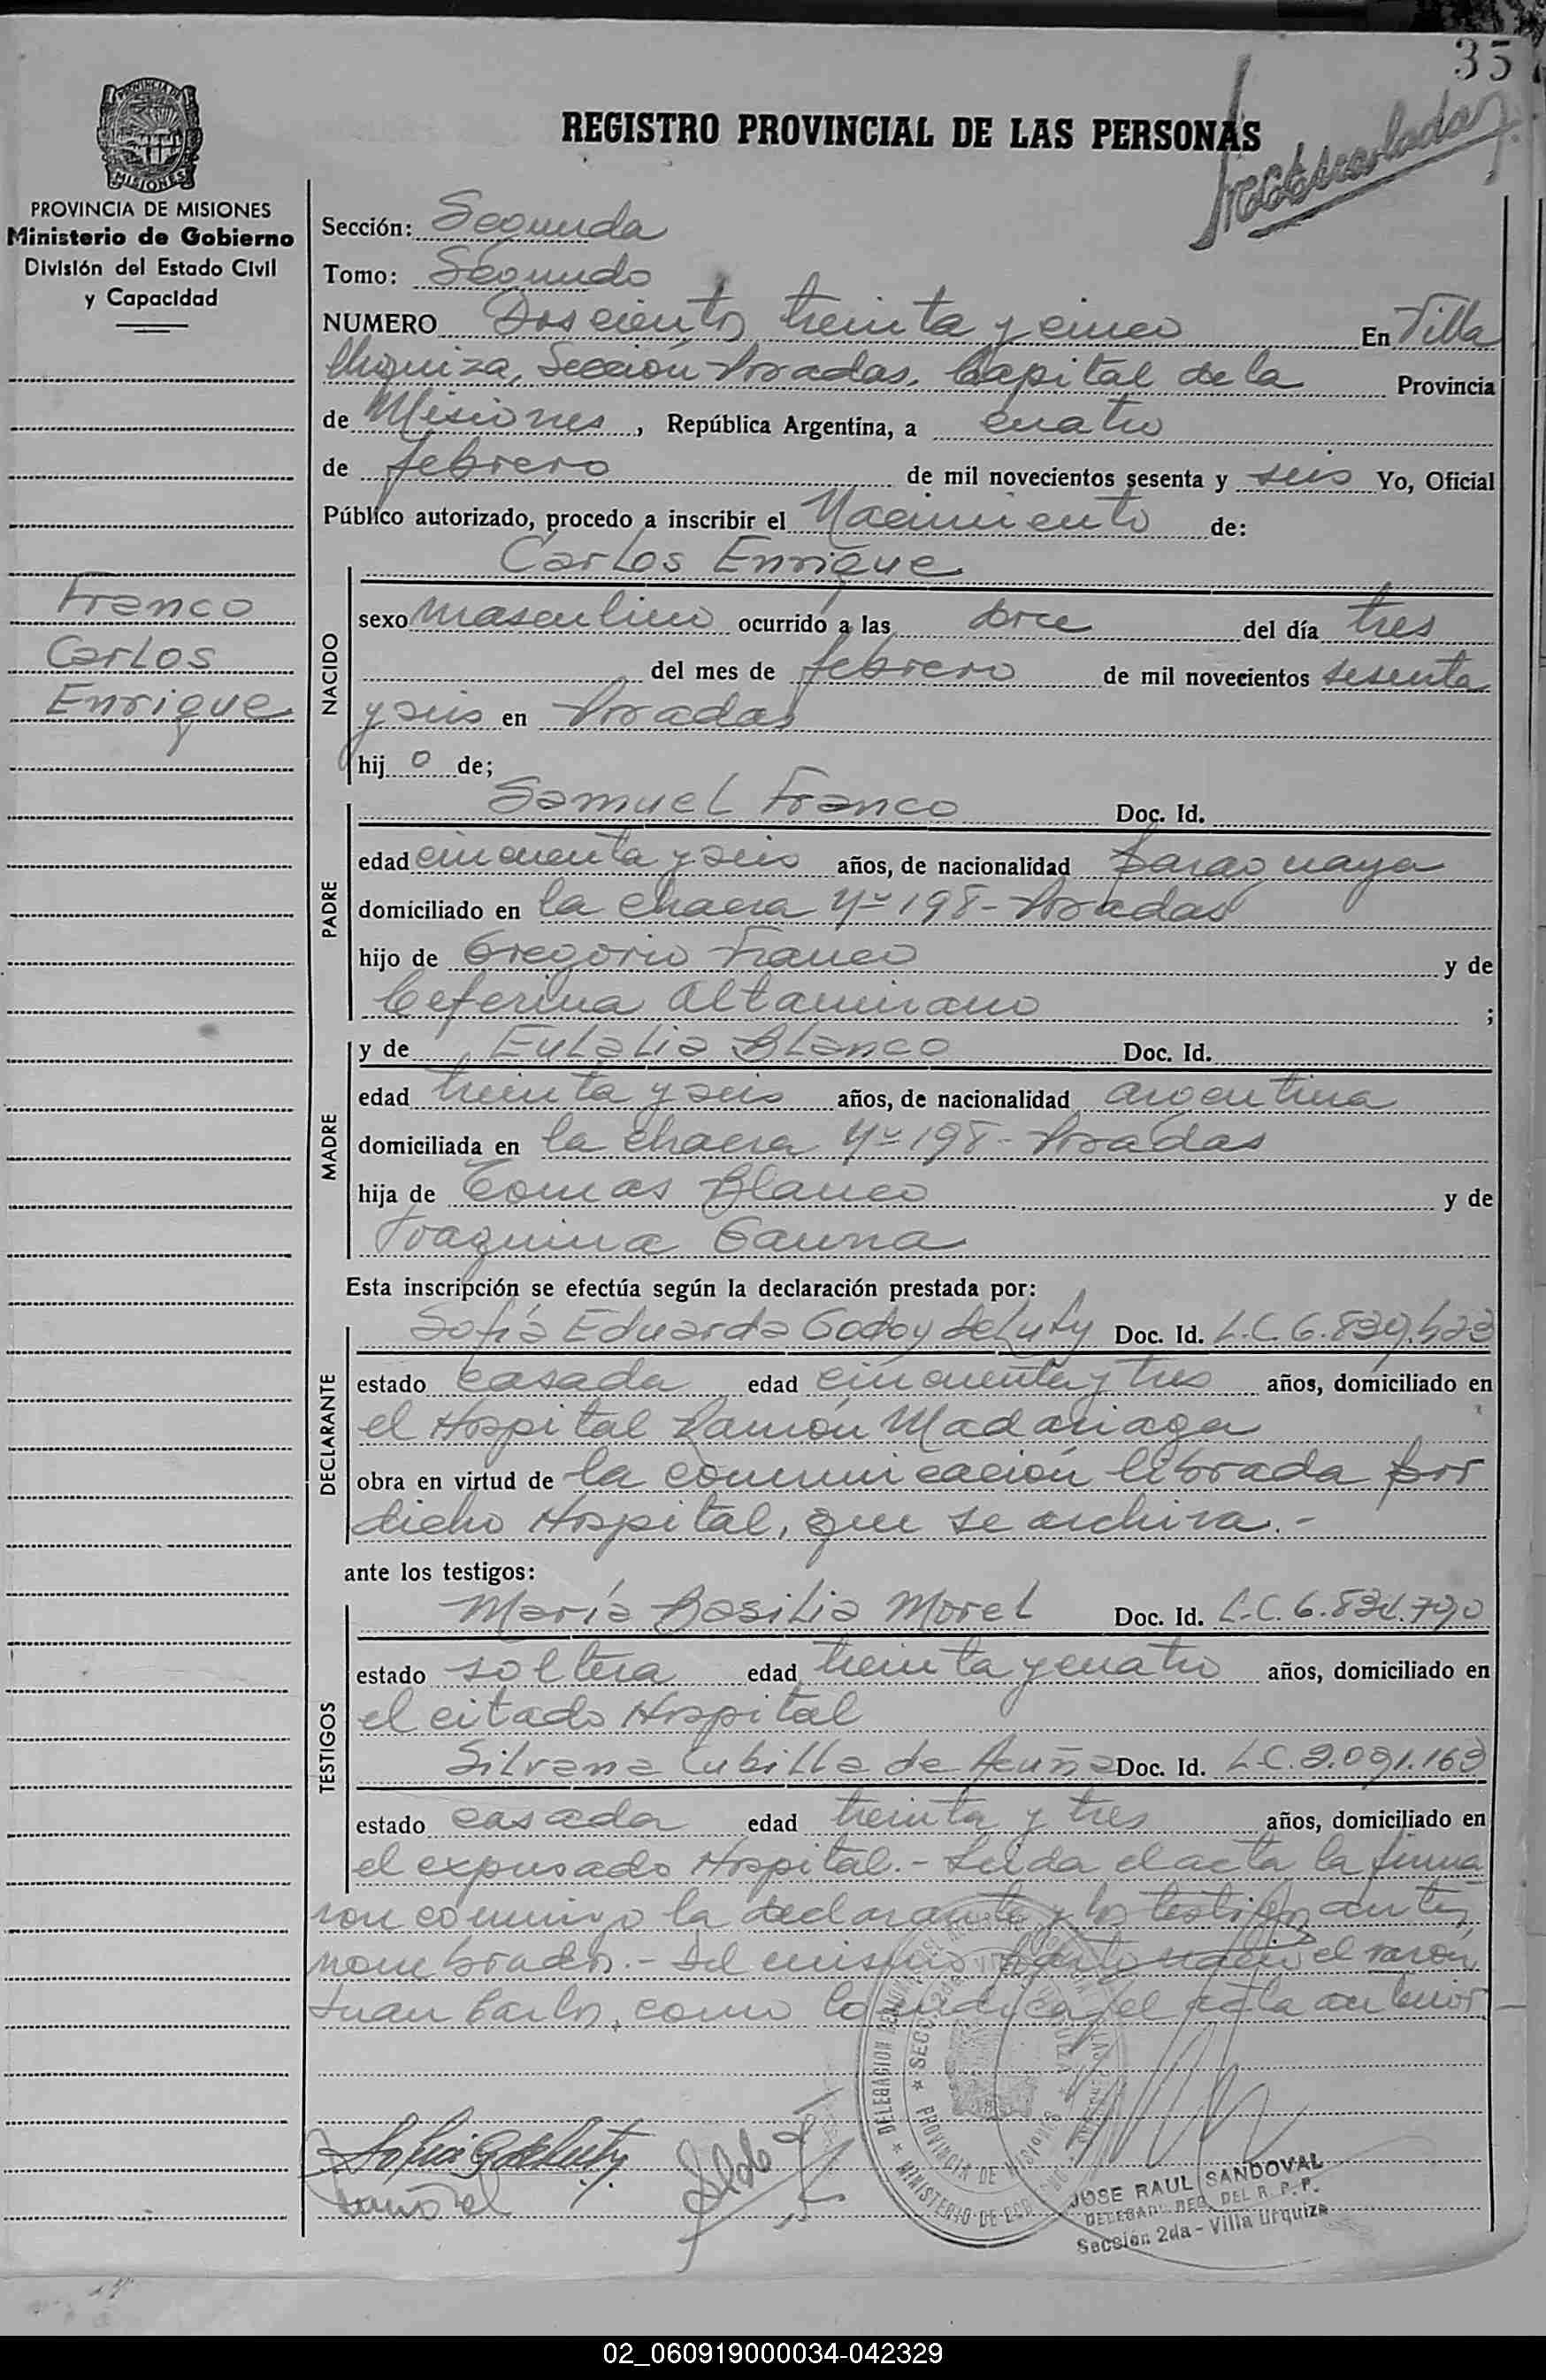 35
REGISTRO PROVINCIAL DE LAS PERSONAS
MISIONES
PROVINCIA DE MISIONES
Ministerio de Gobierno
División del Estado Civil
y Capacidad
Franco
Carlos
Enrique
Sección: Segunda
Tomo: Segundo
NUMERO Doscientos treinta y cinco En Villa
Urquiza, Sección Posadas, Capital de la Provincia
de Misiones, República Argentina, a cuatro
de febrero de mil novecientos sesenta y seis Yo, Oficial
Público autorizado, procedo a inscribir el Nacimiento de:
Carlos Enrique
NACIDO
sexo masculino ocurrido a las doce del día tres
del mes de febrero de mil novecientos sesenta
y seis en Posadas
hijo de;
PADRE
Samuel Franco Doc. Id.
edad cincuenta y seis años, de nacionalidad paraguaya
domiciliado en la chacra Nº 198 - Posadas
hijo de Gregorio Franco y de
Ceferina Altamirano ;
MADRE
y de Eulalia Blanco Doc. Id.
edad treinta y seis años, de nacionalidad argentina
domiciliada en la chacra Nº 198 - Posadas
hija de Tomas Blanco y de
Joaquina Gauna
Esta inscripción se efectúa según la declaración prestada por:
DECLARANTE
Sofía Eduarda Godoy de Luty Doc. Id. L.C. 6.839.523
estado casada edad cincuenta y tres años, domiciliado en
el Hospital Ramón Madariaga
obra en virtud de la comunicación librada por
dicho Hospital, que se archiva.-
ante los testigos:
TESTIGOS
María Basilia Morel Doc. Id. L.C. 6.834.790
estado soltera edad treinta y cuatro años, domiciliado en
el citado Hospital
Silvana Cubilla de Acuña Doc. Id. L.C. 2.091.163
estado casada edad treinta y tres años, domiciliado en
el expresado Hospital.- Leida el acta la firma
ron conmigo la declarante y los testigos antes
nombrados.- Del mismo parto nació el varón
Juan Carlos, como lo indica el acta anterior
DELEGACION
PROVINCIA DE MISIONES
JOSE RAUL SANDOVAL
DELEGADO REG. DEL R. P. P.
Sección 2da - Villa Urquiza
02_060919000034-042329